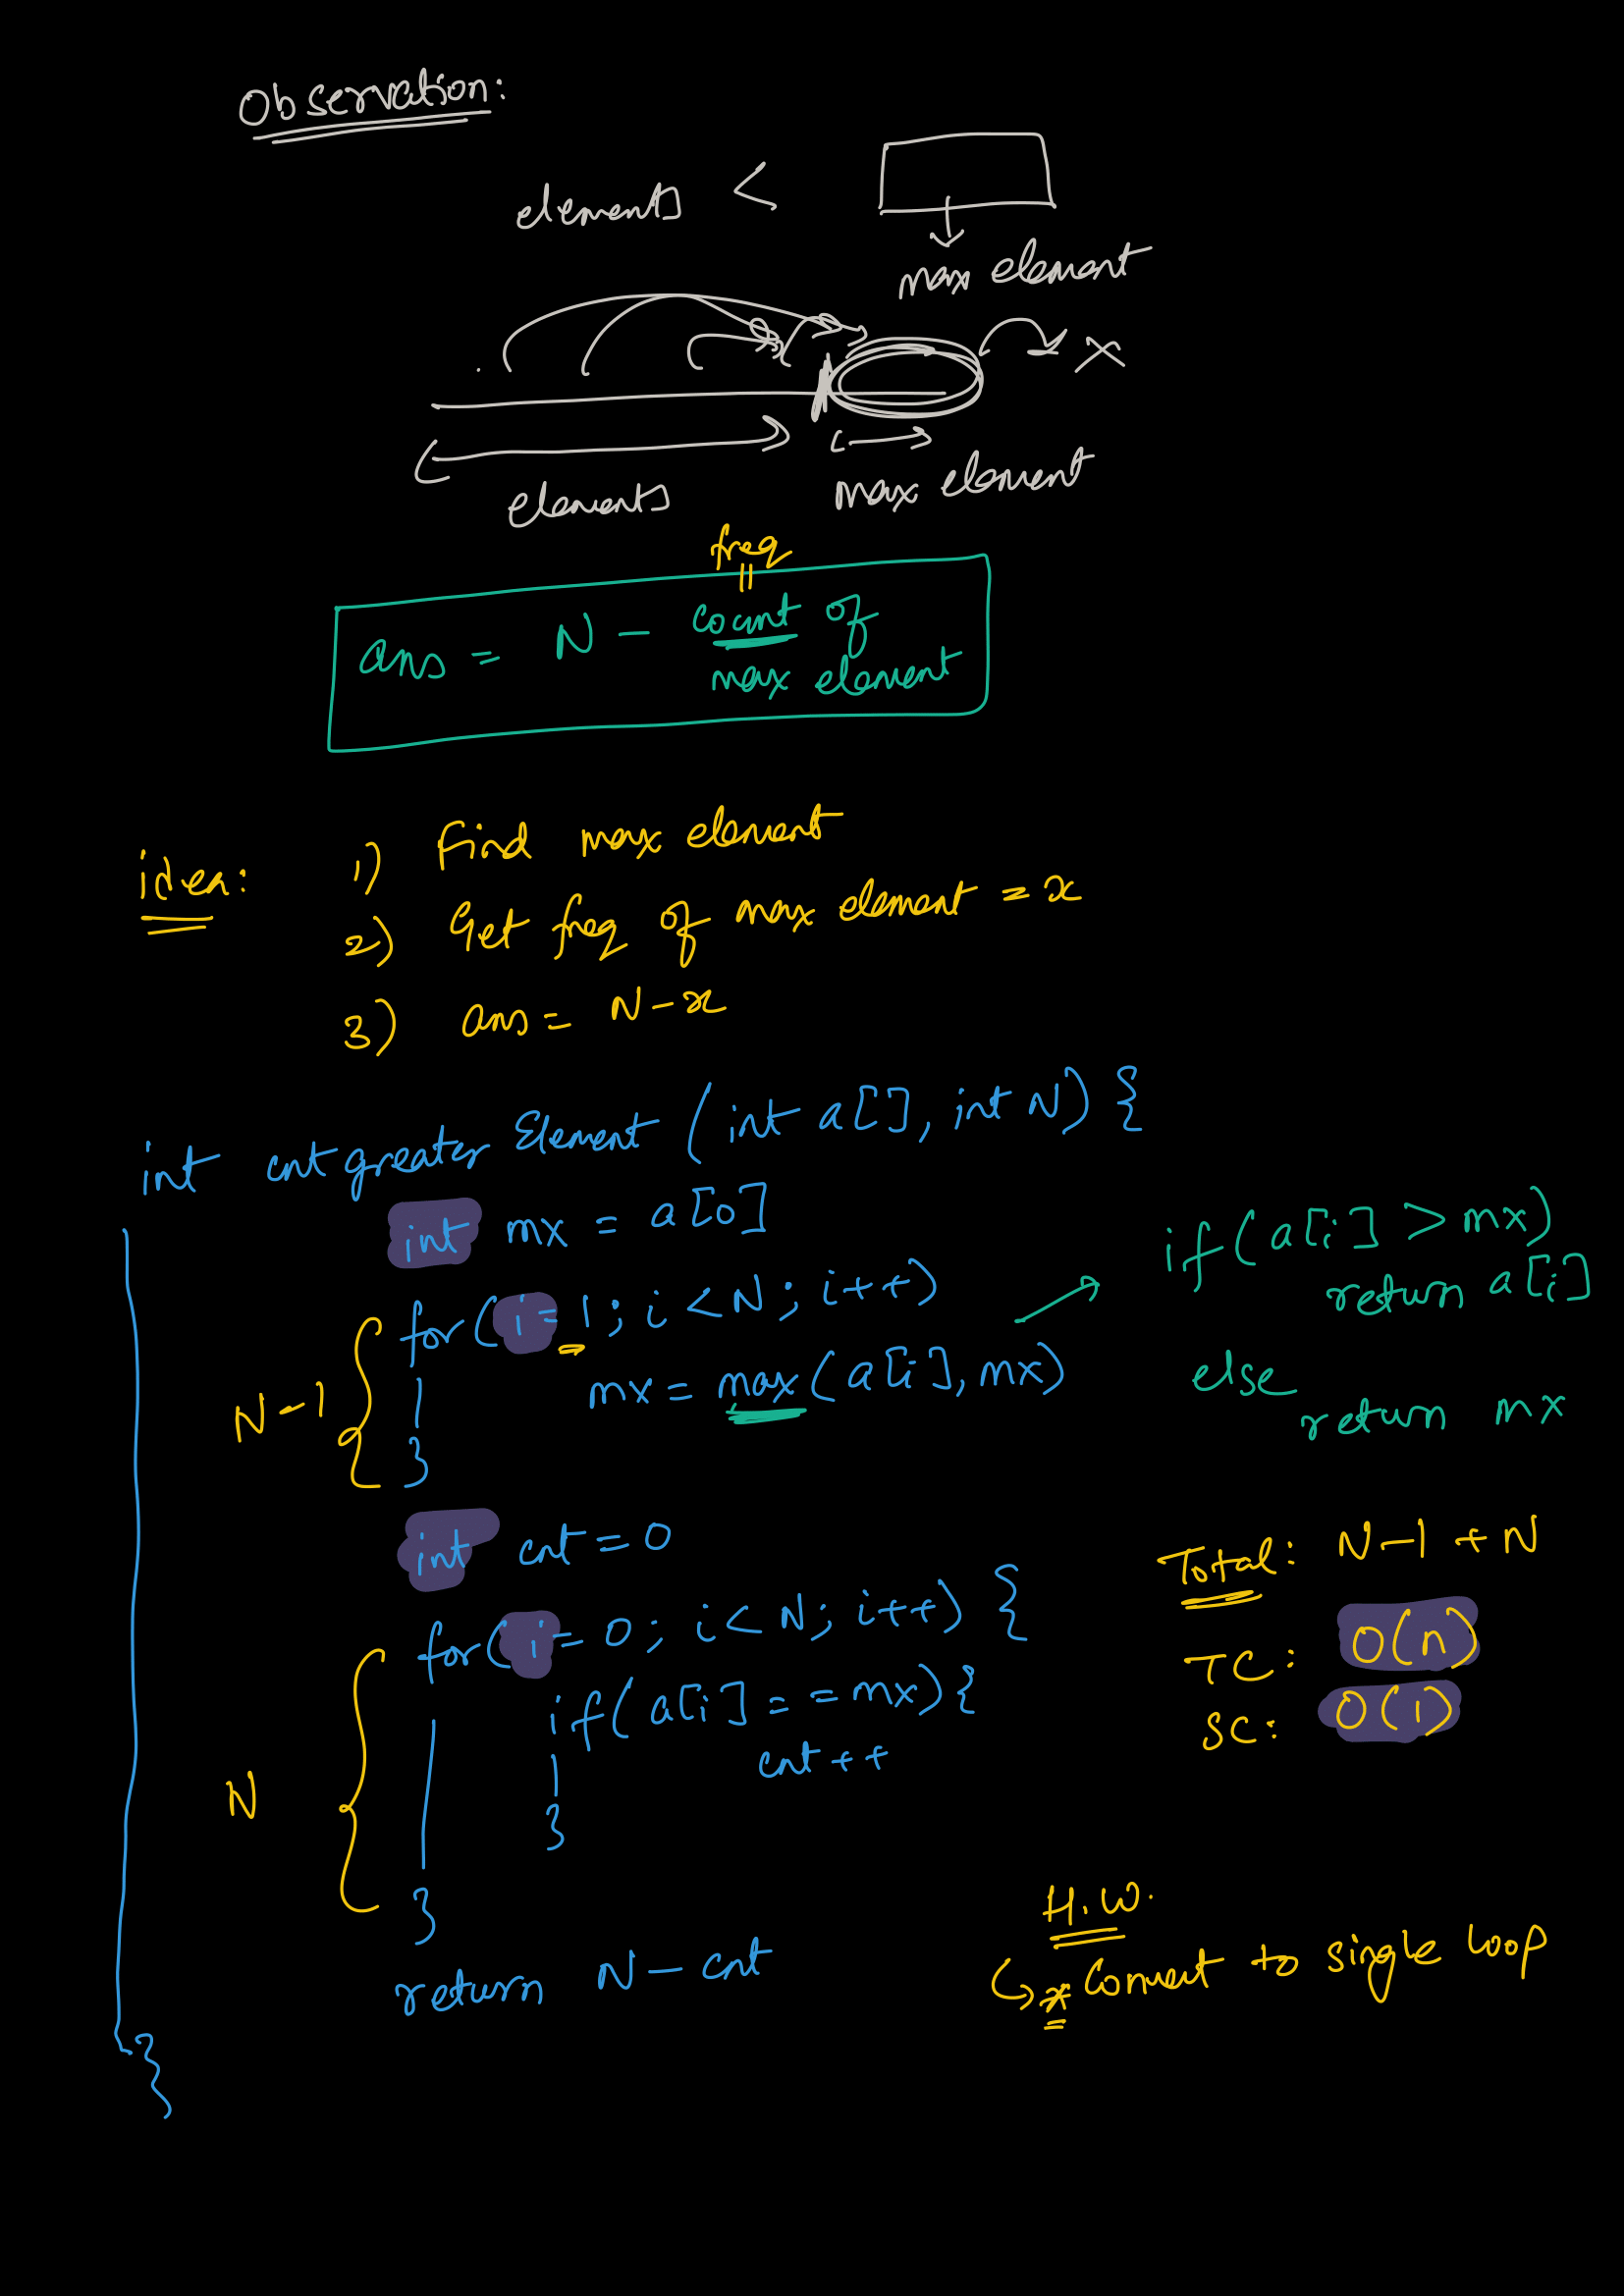 Observation:
elements <
max element
x
elements
max element
freq
||
ans = N - count of
max element
idea: 1) Find max element
2) Get freq of max element = x
3) ans = N - x
int cntgreater Element (int a[], int N) {
int mx = a[0]
for(i=1; i<N; i++)
mx = max(a[i], mx)
}
N-1
if(a[i] > mx)
return a[i]
else
return mx
int cnt = 0
for(i=0; i<N; i++) {
if(a[i]==mx){
cnt++
}
}
N
return N-cnt
}
Total: N-1 + N
TC: O(n)
SC: O(1)
H.W.
* Convert to single loop